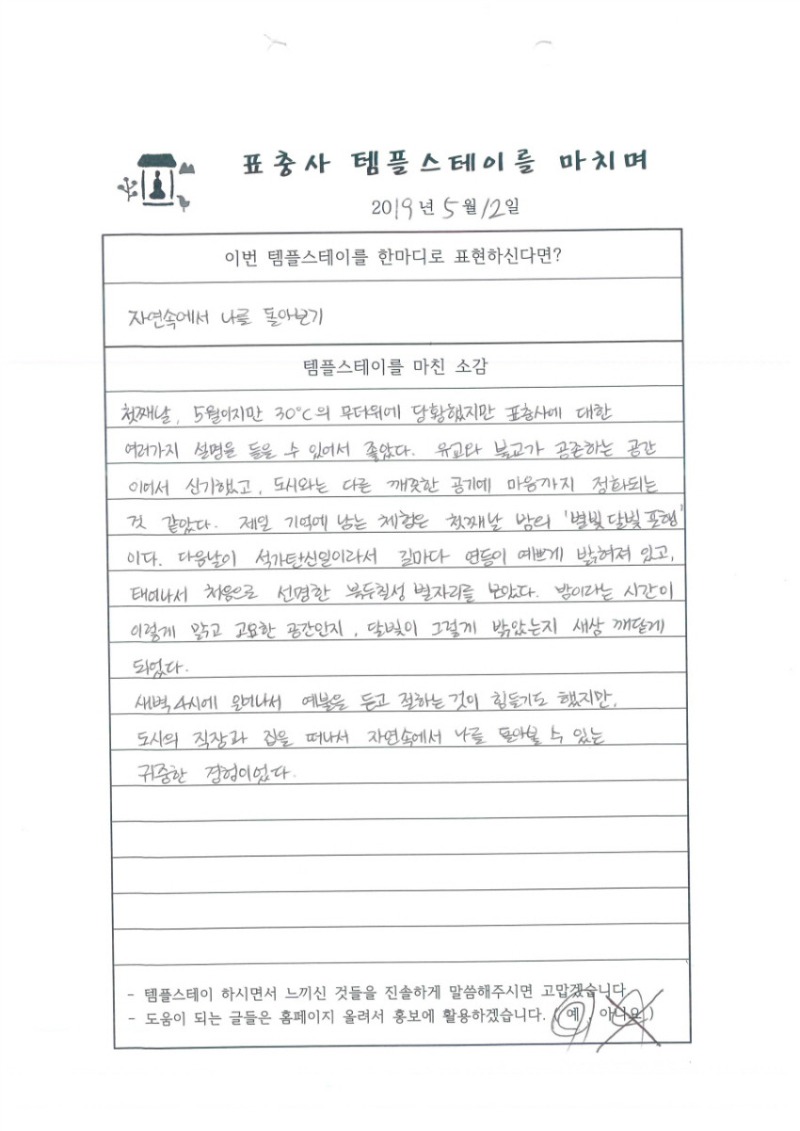 표충사 템플스테이를 마치며
2019년 5월 12일
이번 템플스테이를 한마디로 표현하신다면?
자연속에서 나를 돌아보기
템플스테이를 마친 소감
첫째날, 5월이지만 30℃의 무더위에 당황했지만 표충사에 대한
여러가지 설명을 들을 수 있어서 좋았다. 유교와 불교가 공존하는 공간
이어서 신기했고, 도시와는 다른 깨끗한 공기에 마음까지 정화되는
것 같았다. 제일 기억에 남는 체험은 첫째날 밤의 '별빛달빛포행'
이다. 다음날이 석가탄신일이라서 길마다 연등이 예쁘게 밝혀져 있고,
태어나서 처음으로 선명한 북두칠성 별자리를 보았다. 밤이라는 시간이
이렇게 맑고 고요한 공간인지, 달빛이 그렇게 밝았는지 새삼 깨닫게
되었다.
새벽 4시에 일어나서 예불을 듣고 절하는 것이 힘들기도 했지만,
도시의 직장과 집을 떠나서 자연속에서 나를 돌아볼 수 있는
귀중한 경험이었다.
- 템플스테이 하시면서 느끼신 것들을 진솔하게 말씀해주시면 고맙겠습니다
- 도움이 되는 글들은 홈페이지 올려서 홍보에 활용하겠습니다. ( 예 , 아니오 )